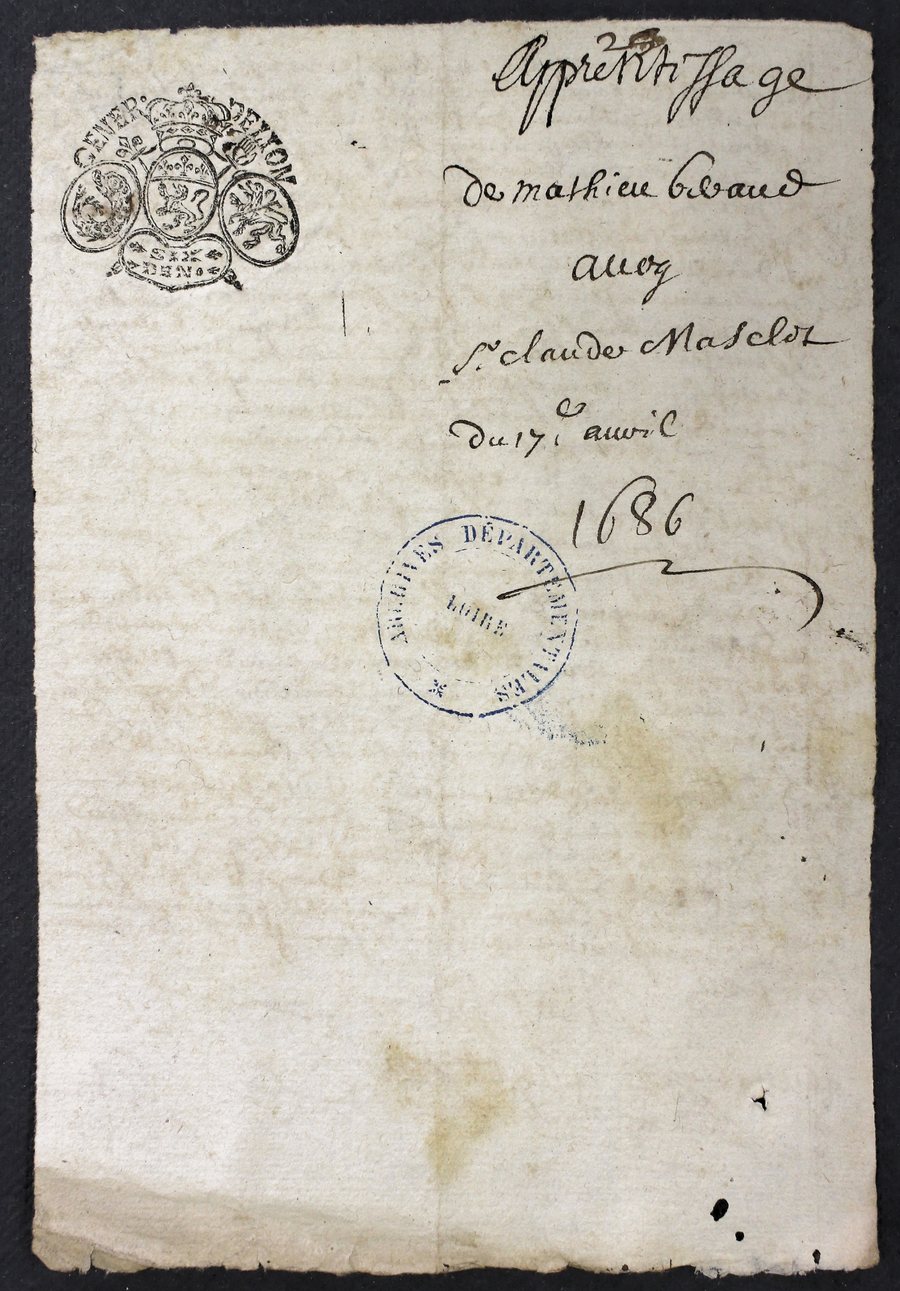 GENER. DE LION
SIX
DEN.
Apprentissage
de mathieu
avecq
Sr. claude Masclot
du 17e avril
1686
ARCHIVES DÉPARTEMENTALES
LOIRE